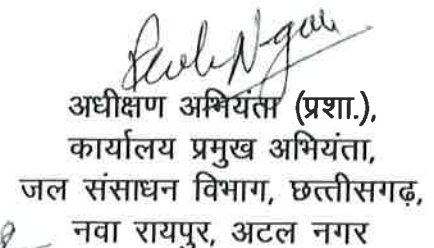 अधीक्षण अभियंता (प्रशा.),
कार्यालय प्रमुख अभियंता,
जल संसाधन विभाग, छत्तीसगढ़,
नवा रायपुर, अटल नगर